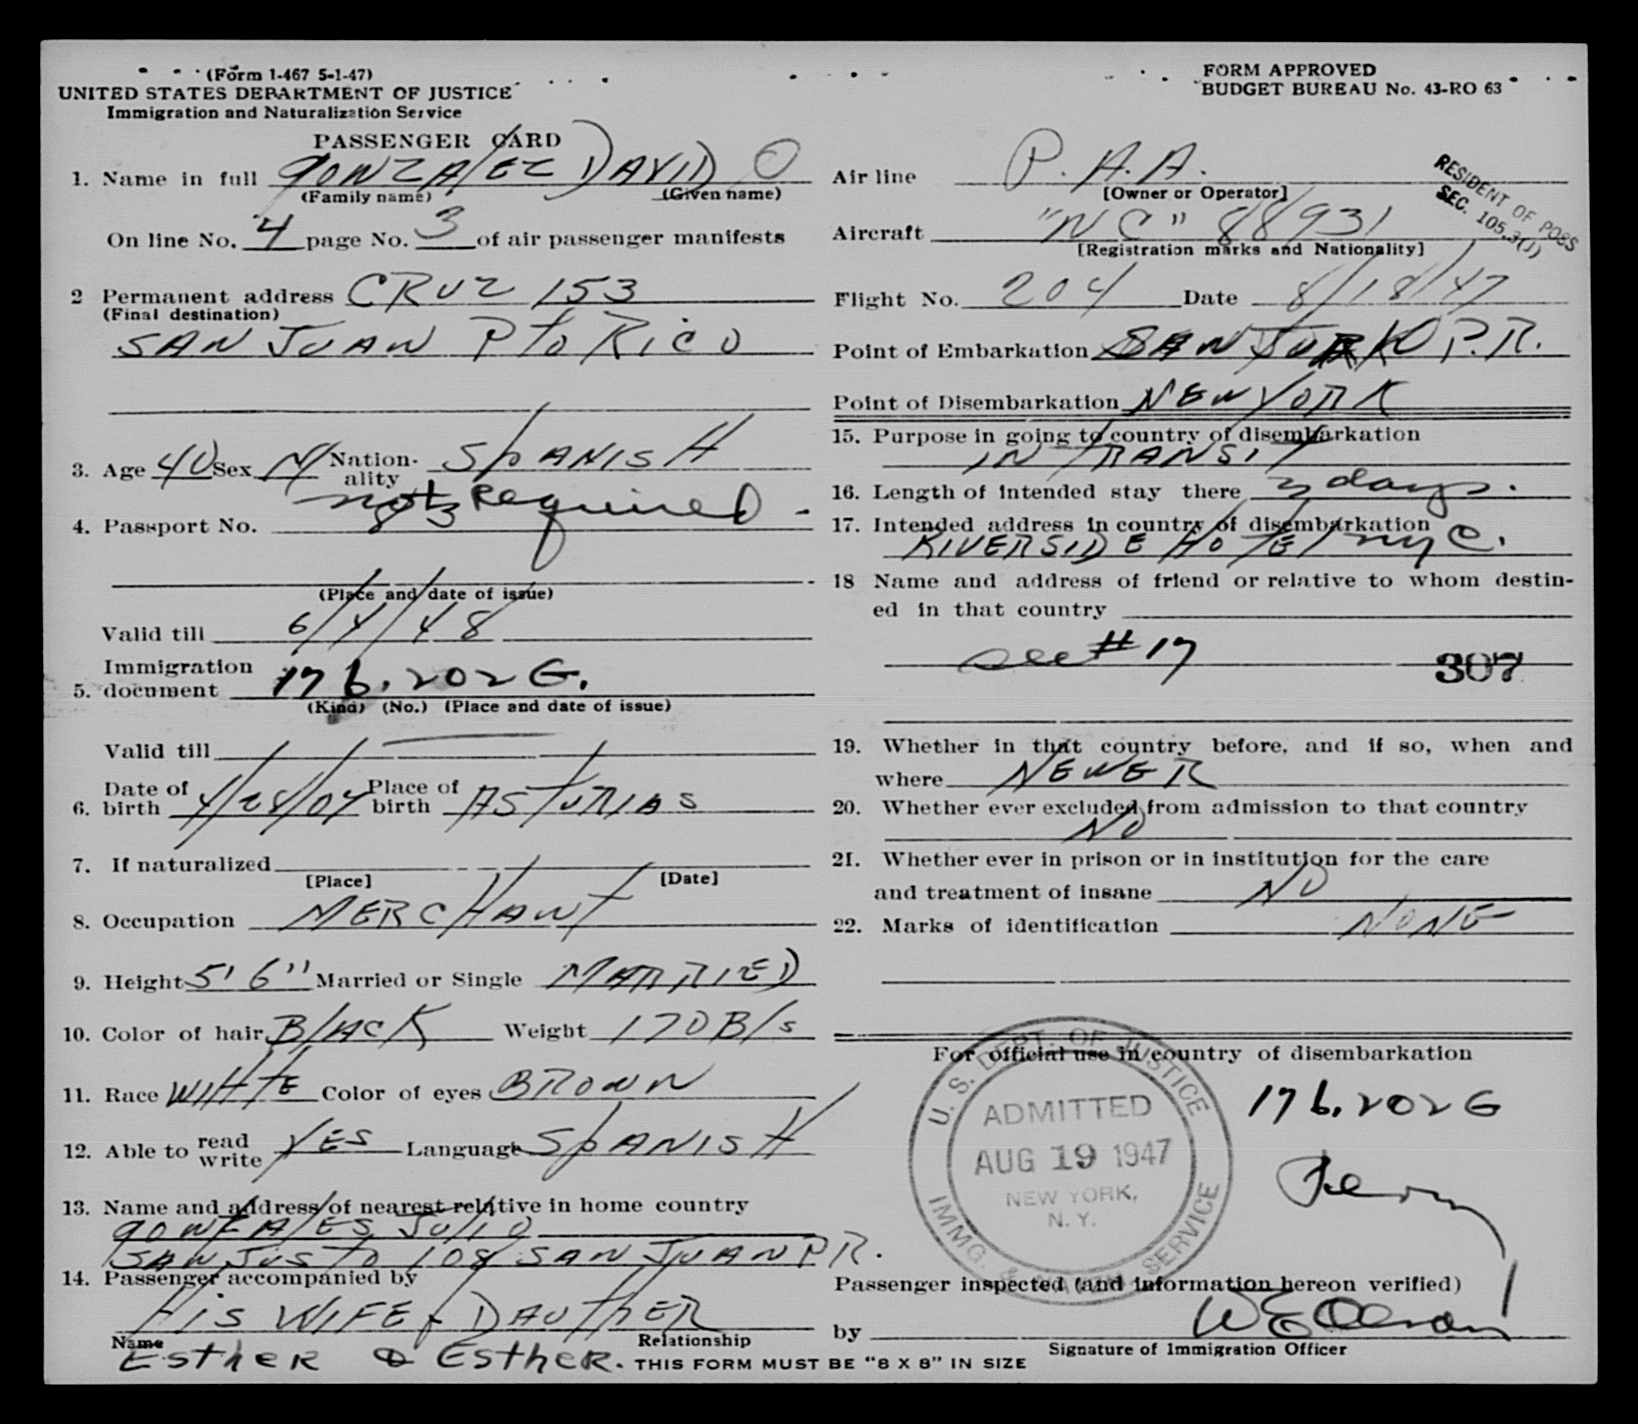 (Form I-467 5-1-47)
UNITED STATES DEPARTMENT OF JUSTICE
Immigration and Naturalization Service
PASSENGER CARD
1. Name in full GONZALEZ DAVID O
(Family name) (Given name)
On line No. 4 page No. 3 of air passenger manifests
2 Permanent address CRUZ 153
(Final destination)
SAN JUAN Pto RICO
3. Age 40 Sex M Nationality SPANISH
4. Passport No. not Required.
(Place and date of issue)
Valid till 6/4/48
5. Immigration document 176.202 G.
(Kind) (No.) (Place and date of issue)
Valid till
6. Date of birth 4/28/07 Place of birth ASTURIAS
7. If naturalized
[Place] [Date]
8. Occupation MERCHANT
9. Height 5' 6" Married or Single MARRIED
10. Color of hair BLACK Weight 170
11. Race WHITE Color of eyes BROWN
12. Able to read write YES Language SPANISH
13. Name and address of nearest relative in home country
JULIO
SAN JUSTO 108 SAN JUAN P.R.
14. Passenger accompanied by
HIS WIFE & DAUTHER
Name Relationship
ESTHER & ESTHER.
THIS FORM MUST BE "8 X 8" IN SIZE
FORM APPROVED
BUDGET BUREAU No. 43-RO 63
Air line P.A.A.
[Owner or Operator]
RESIDENT OF POSS
SEC. 105.3(J)
Aircraft "NC" 88931
[Registration marks and Nationality]
Flight No. 204 Date 8/18/47
Point of Embarkation SAN JUAN P.R.
Point of Disembarkation NEW YORK
15. Purpose in going to country of disembarkation
IN TRANSIT
16. Length of intended stay there days.
17. Intended address in country of disembarkation
RIVERSIDE HOTEL NYC.
18 Name and address of friend or relative to whom destin-
ed in that country
see #17
307
19. Whether in that country before, and if so, when and
where NEWER
20. Whether ever excluded from admission to that country
NO
21. Whether ever in prison or in institution for the care
and treatment of insane NO
22. Marks of identification NONE
For official use in country of disembarkation
176.202 G
U. S. DEPT. OF JUSTICE
ADMITTED
AUG 19 1947
NEW YORK,
N. Y.
IMMG. & NATZN. SERVICE
Passenger inspected (and information hereon verified)
by
Signature of Immigration Officer